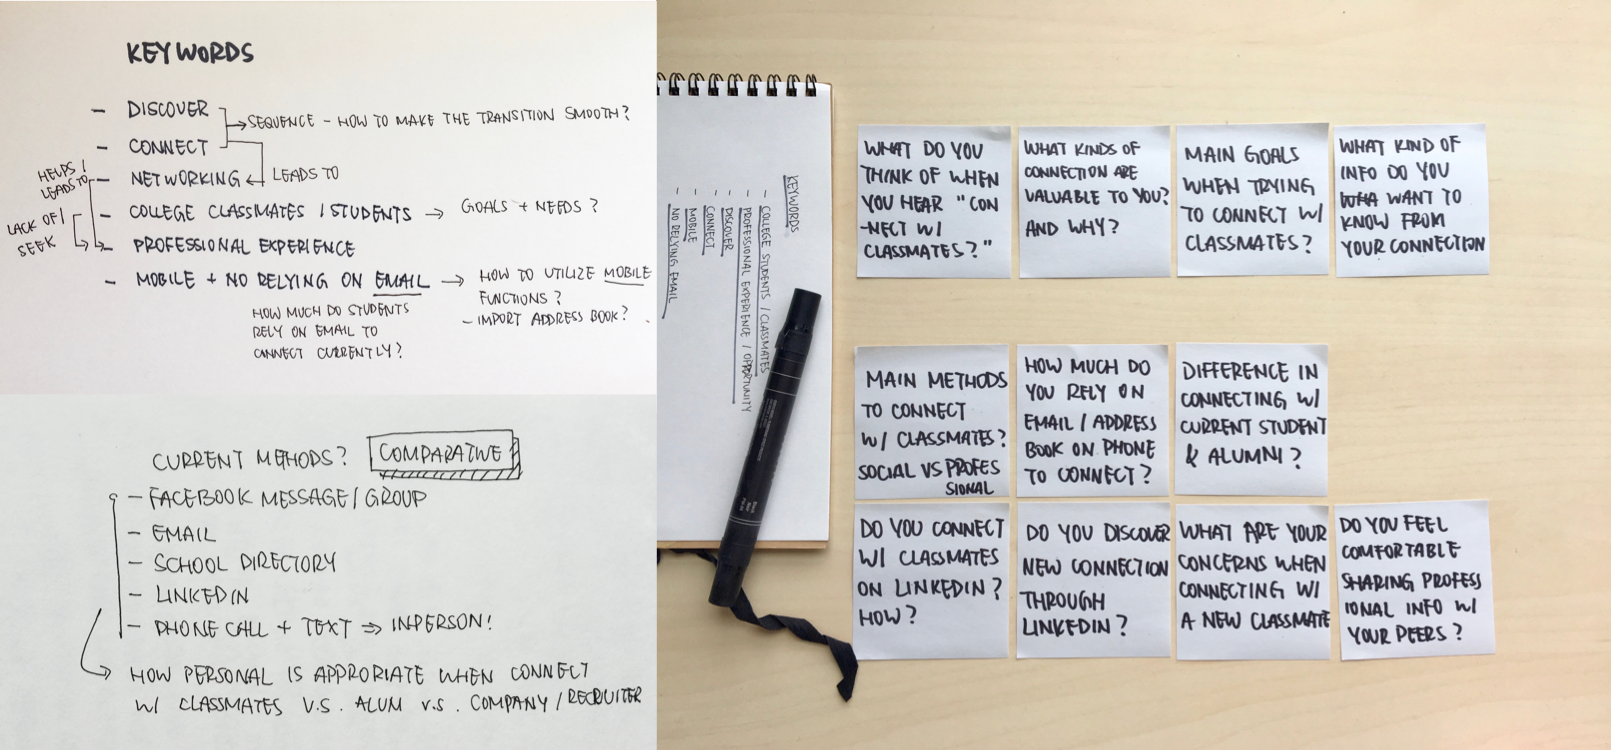 KEYWORDS
- DISCOVER
→ SEQUENCE - HOW TO MAKE THE TRANSITION SMOOTH?
- CONNECT
- NETWORKING ← LEADS TO
HELPS /
LEADS TO
- COLLEGE CLASSMATES / STUDENTS → GOALS + NEEDS?
LACK OF /
SEEK
- PROFESSIONAL EXPERIENCE
- MOBILE + NO RELYING ON EMAIL → HOW TO UTILIZE MOBILE
FUNCTIONS?
- IMPORT ADDRESS BOOK?
HOW MUCH DO STUDENTS
RELY ON EMAIL TO
CONNECT CURRENTLY?
CURRENT METHODS? COMPARATIVE
- FACEBOOK MESSAGE / GROUP
- EMAIL
- SCHOOL DIRECTORY
- LINKEDIN
- PHONE CALL + TEXT ⇒ INPERSON!
HOW PERSONAL IS APPRORIATE WHEN CONNECT
W/ CLASSMATES V.S. ALUM V.S. COMPANY / RECRUITER
KEYWORDS
- COLLEGE STUDENTS / CLASSMATES
- PROFESSIONAL EXPERIENCE / OPPORTUNITY
- DISCOVER
- CONNECT
- MOBILE
- NO RELYING EMAIL
WHAT DO YOU
THINK OF WHEN
YOU HEAR "CON
-NECT W/
CLASSMATES?"
WHAT KINDS OF
CONNECTION ARE
VALUABLE TO YOU?
AND WHY?
MAIN GOALS
WHEN TRYING
TO CONNECT W/
CLASSMATES?
WHAT KIND OF
INFO DO YOU
WANT TO
KNOW FROM
YOUR CONNECTION
MAIN METHODS
TO CONNECT
W/ CLASSMATES?
SOCIAL VS PROFES
SIONAL
HOW MUCH DO
YOU RELY ON
EMAIL / ADDRESS
BOOK ON PHONE
TO CONNECT?
DIFFERENCE IN
CONNECTING W/
CURRENT STUDENT
& ALUMNI?
DO YOU CONNECT
W/ CLASSMATES
ON LINKEDIN?
HOW?
DO YOU DISCOVER
NEW CONNECTION
THROUGH
LINKEDIN?
WHAT ARE YOUR
CONCERNS WHEN
CONNECTING W/
A NEW CLASSMATE
DO YOU FEEL
COMFORTABLE
SHARING PROFESS
IONAL INFO W/
YOUR PEERS?